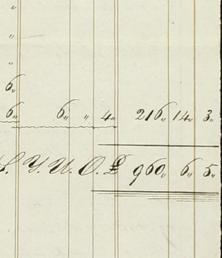 "
"
"
6"
6" 6" " 4" 216" 14" 3"
S. Y. U. O. £ 960" 6" 5"